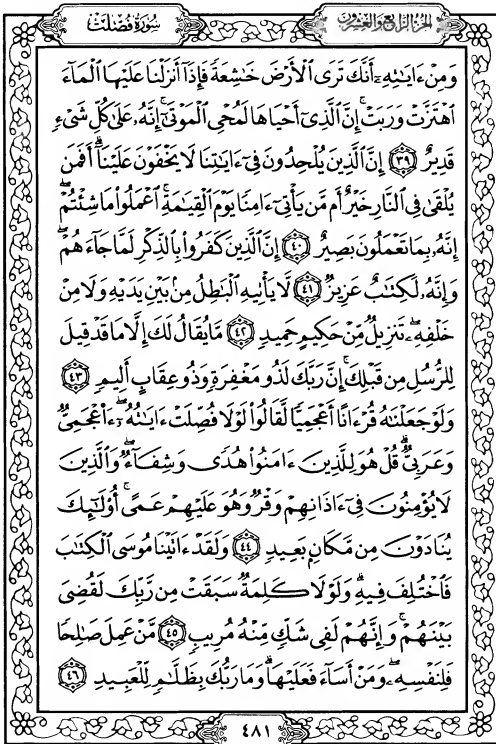 سورة فصلت
الجزء الرابع والعشرون
وَمِنْ ءَايَٰتِهِۦٓ أَنَّكَ تَرَى ٱلْأَرْضَ خَٰشِعَةً فَإِذَآ أَنزَلْنَا عَلَيْهَا ٱلْمَآءَ
ٱهْتَزَّتْ وَرَبَتْ ۚ إِنَّ ٱلَّذِىٓ أَحْيَاهَا لَمُحْىِ ٱلْمَوْتَىٰٓ ۚ إِنَّهُۥ عَلَىٰ كُلِّ شَىْءٍ
قَدِيرٌ ﴿٣٩﴾ إِنَّ ٱلَّذِينَ يُلْحِدُونَ فِىٓ ءَايَٰتِنَا لَا يَخْفَوْنَ عَلَيْنَآ ۗ أَفَمَن
يُلْقَىٰ فِى ٱلنَّارِ خَيْرٌ أَم مَّن يَأْتِىٓ ءَامِنًا يَوْمَ ٱلْقِيَٰمَةِ ۚ ٱعْمَلُوا۟ مَا شِئْتُمْ ۖ
إِنَّهُۥ بِمَا تَعْمَلُونَ بَصِيرٌ ﴿٤٠﴾ إِنَّ ٱلَّذِينَ كَفَرُوا۟ بِٱلذِّكْرِ لَمَّا جَآءَهُمْ ۖ
وَإِنَّهُۥ لَكِتَٰبٌ عَزِيزٌ ﴿٤١﴾ لَّا يَأْتِيهِ ٱلْبَٰطِلُ مِنۢ بَيْنِ يَدَيْهِ وَلَا مِنْ
خَلْفِهِۦ ۖ تَنزِيلٌ مِّنْ حَكِيمٍ حَمِيدٍ ﴿٤٢﴾ مَّا يُقَالُ لَكَ إِلَّا مَا قَدْ قِيلَ
لِلرُّسُلِ مِن قَبْلِكَ ۚ إِنَّ رَبَّكَ لَذُو مَغْفِرَةٍ وَذُو عِقَابٍ أَلِيمٍ ﴿٤٣﴾
وَلَوْ جَعَلْنَٰهُ قُرْءَانًا أَعْجَمِيًّا لَّقَالُوا۟ لَوْلَا فُصِّلَتْ ءَايَٰتُهُۥٓ ۖ ءَا۬عْجَمِىٌّ
وَعَرَبِىٌّ ۗ قُلْ هُوَ لِلَّذِينَ ءَامَنُوا۟ هُدًى وَشِفَآءٌ ۖ وَٱلَّذِينَ
لَا يُؤْمِنُونَ فِىٓ ءَاذَانِهِمْ وَقْرٌ وَهُوَ عَلَيْهِمْ عَمًى ۚ أُو۟لَٰٓئِكَ
يُنَادَوْنَ مِن مَّكَانٍۭ بَعِيدٍ ﴿٤٤﴾ وَلَقَدْ ءَاتَيْنَا مُوسَى ٱلْكِتَٰبَ
فَٱخْتُلِفَ فِيهِ ۗ وَلَوْلَا كَلِمَةٌ سَبَقَتْ مِن رَّبِّكَ لَقُضِىَ
بَيْنَهُمْ ۚ وَإِنَّهُمْ لَفِى شَكٍّ مِّنْهُ مُرِيبٍ ﴿٤٥﴾ مَّنْ عَمِلَ صَٰلِحًا
فَلِنَفْسِهِۦ ۖ وَمَنْ أَسَآءَ فَعَلَيْهَا ۗ وَمَا رَبُّكَ بِظَلَّٰمٍ لِّلْعَبِيدِ ﴿٤٦﴾
٤٨١